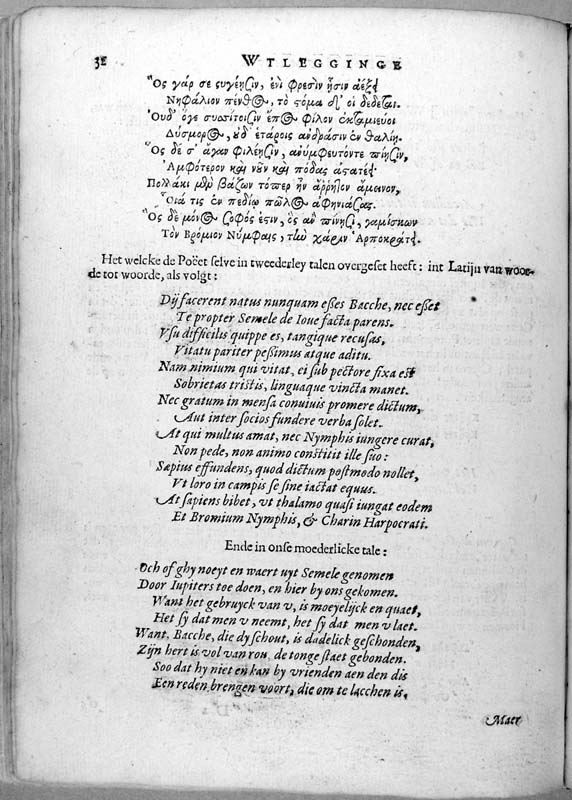 32 WTLEGGINGE
Ὃς γάρ σε στυγέησιν, ἐνὶ φρεσὶν ᾗσιν ἀέξει
Νηφάλιον πένθος, τὸ στόμα δ' οἱ δέδεται.
Οὐδ' ὅγε συσσίτοισιν ἔπος φίλον
Δύσμορος, οὐδ' ἑτάροις ἀνδράσιν ἐν θαλίῃ.
Ὃς δέ σ' ἄγαν φιλέησιν, ἀνυμφευτόν τε πίησιν,
Ἀμφότερον καὶ νοῦν καὶ πόδας ἀστατέει
Πολλάκι μὲν βάζων τόπερ ἦν ἄῤῥητον ἄμεινον,
Οἷά τις ἐν πεδίῳ πῶλος ἀφηνιάσας.
Ὃς δὲ μόνος σοφός ἐστιν, ὃς ἂν πίνῃσι, γαμίσκων
Τὸν Βρόμιον Νύμφαις, τὴν χάριν Ἁρποκράτει.
Het welcke de Poëet selve in tweederley talen overgeset heeft: int Latijn van woor-
de tot woorde, als volgt:
Dij facerent natus nunquam esses Bacche, nec esset
Te propter Semele de Ioue facta parens.
Vsu difficilis quippe es, tangique recusas,
Vitatu pariter pessimus atque aditu.
Nam nimium qui vitat, ei sub pectore fixa est
Sobrietas tristis, linguaque vincta manet.
Nec gratum in mensa conuiuis promere dictum,
Aut inter socios fundere verba solet.
At qui multus amat, nec Nymphis iungere curat,
Non pede, non animo constitit ille suo:
Sæpius effundens, quod dictum postmodo nollet,
Vt loro in campis se sine iactat equus.
At sapiens bibet, vt thalamo quasi iungat eodem
Et Bromium Nymphis, & Charin Harpocrati.
Ende in onse moederlicke tale:
Och of ghy noeyt en waert uyt Semele genomen
Door Iupiters toe doen, en hier by ons gekomen.
Want het gebruyck van v, is moeyelijck en quaet,
Het sy dat men v neemt, het sy dat men v laet.
Want, Bacche, die dy schout, is dadelick geschonden,
Zijn hert is vol van rou, de tonge staet gebonden.
Soo dat hy niet en kan by vrienden aen den dis
Een reden brengen voort, die om te lacchen is,
Maer